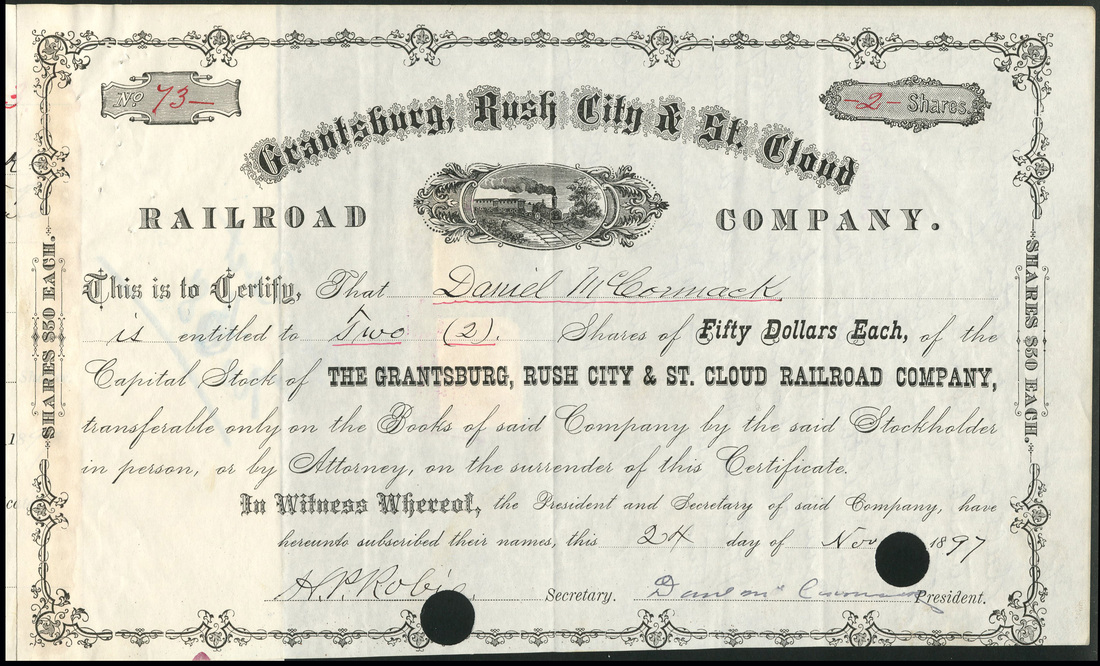 No 73-
-2- Shares.
Grantsburg, Rush City & St. Cloud
RAILROAD COMPANY.
This is to Certify, That Daniel McCormack
is entitled to Two (2). Shares of Fifty Dollars Each, of the
Capital Stock of THE GRANTSBURG, RUSH CITY & ST. CLOUD RAILROAD COMPANY,
transferable only on the Books of said Company by the said Stockholder
in person, or by Attorney, on the surrender of this Certificate.
In Witness Whereof, the President and Secretary of said Company, have
hereunto subscribed their names, this 24 day of Nov 1897
H.P. Robie Secretary. President.
SHARES $50 EACH.
SHARES $50 EACH.